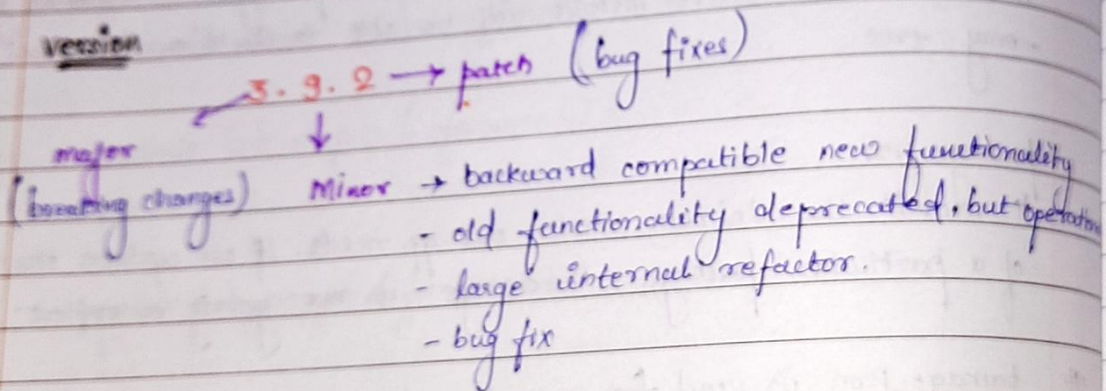 version
3.9.2 → patch (bug fixes)
major
(breaking changes)
Minor → backward compatible new functionality
- old functionality deprecated, but operation
- large internal refactor.
- bug fix